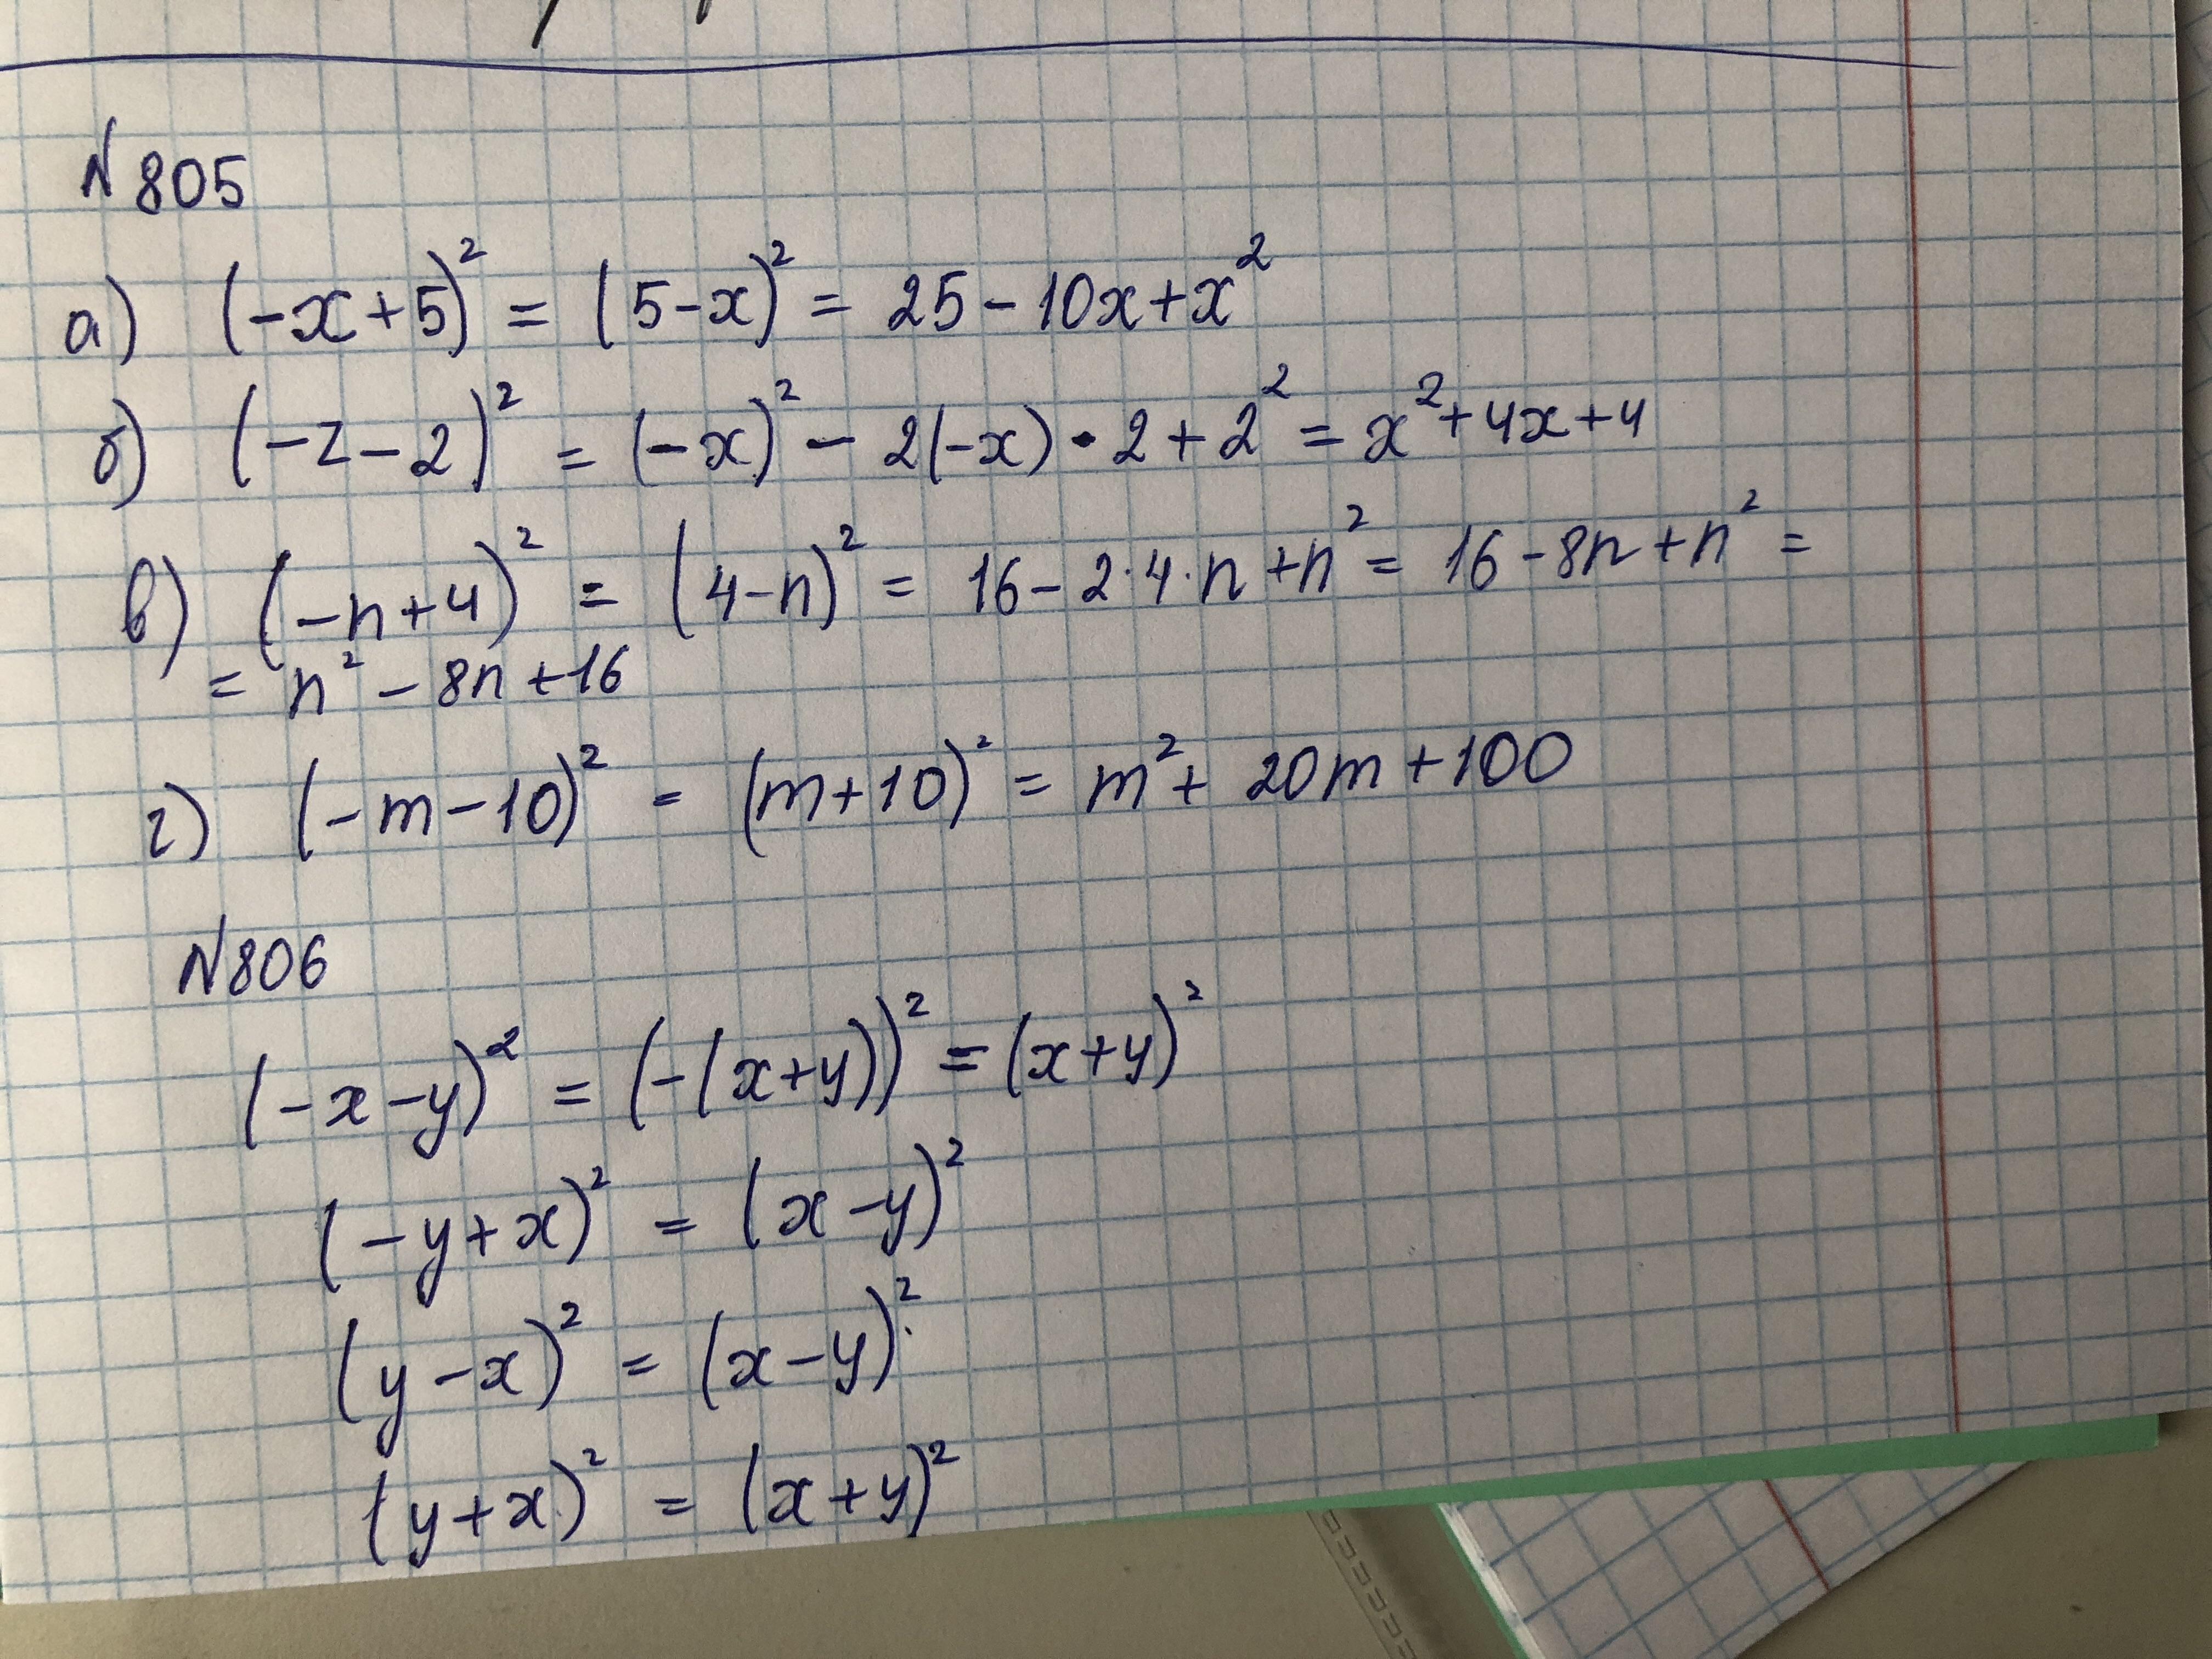 N 805
а) (-x+5)² = (5-x)² = 25 - 10x + x²
б) (-z-2)² = (-x)² - 2(-x) · 2 + 2² = x² + 4x + 4
в) (-n+4)² = (4-n)² = 16 - 2·4·n + n² = 16 - 8n + n² =
= n² - 8n + 16
г) (-m-10)² = (m+10)² = m² + 20m + 100
N 806
(-x-y)² = (-(x+y))² = (x+y)²
(-y+x)² = (x-y)²
(y-x)² = (x-y)²
(y+x)² = (x+y)²